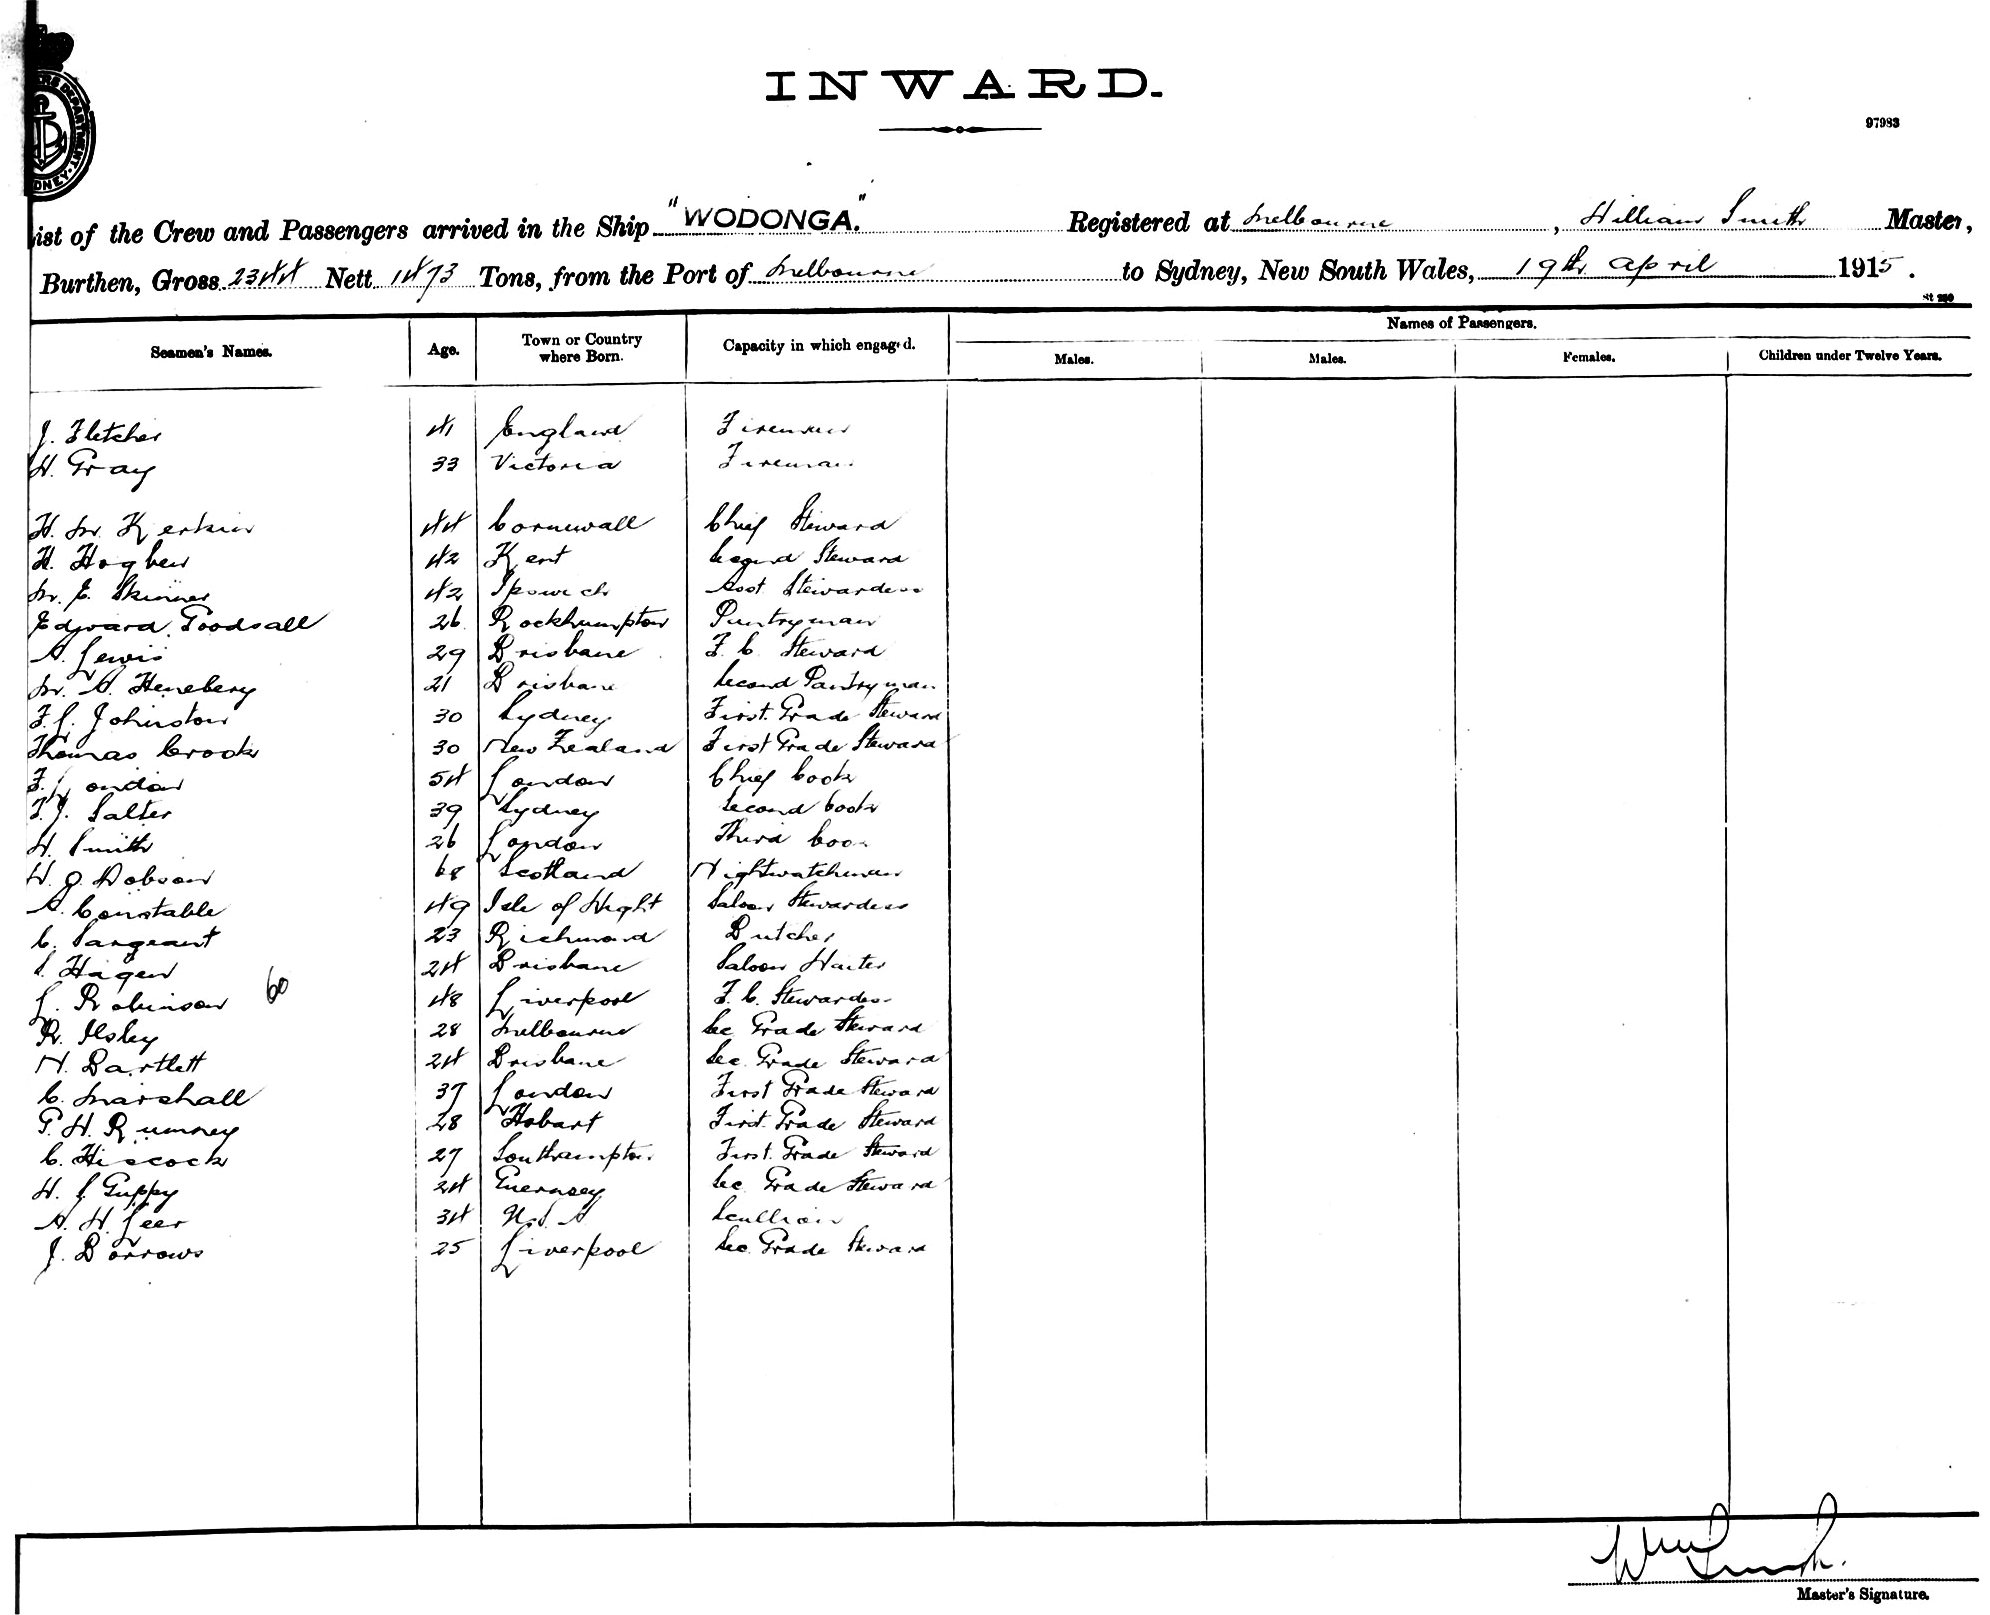 INWARD.
97983
ist of the Crew and Passengers arrived in the Ship "WODONGA." Registered at Melbourne, William Smith Master,
Burthen, Gross 2344 Nett 1473 Tons, from the Port of Melbourne to Sydney, New South Wales, 19th April 1915.
Names of Passengers.
Seamen's Names. Age. Town or Country where Born. Capacity in which engaged. Males. Males. Females. Children under Twelve Years.
J. Fletcher 41 England Fireman
W. Gray 33 Victoria Fireman
H. M. Kerkin 44 Cornwall Chief Steward
H. Hogben 42 Kent Second Steward
M. E. Skinner 42 Ipswich Asst Stewardess
Edward Goodsall 26 Rockhampton Pantryman
A. Lewis 29 Brisbane F. C. Steward
M. A. Henebery 21 Brisbane Second Pantryman
F. L. Johnston 30 Sydney First Grade Steward
Thomas Crook 30 New Zealand First Grade Steward
F. London 54 London Chief Cook
F. J. Salter 39 Sydney Second Cook
W. Smith 26 London Third Cook
W. J. Dobson 68 Scotland Nightwatchman
A. Constable 49 Isle of Wight Saloon Stewardess
C. Sargeant 23 Richmond Butcher
S. Hagen 24 Brisbane Saloon Waiter
L. Robinson 60 48 Liverpool F. C. Stewardess
R. Ilsley 28 Melbourne Sec Grade Steward
N. Bartlett 24 Brisbane Sec. Grade Steward
C. Marshall 37 London First Grade Steward
G. H. Rumney 28 Hobart First Grade Steward
C. Hiscock 27 Southampton First Grade Steward
W. L. Guppy 24 Guernsey Sec Grade Steward
A. W. Leer 34 U.S.A Scullion
J. Borrows 25 Liverpool Sec. Grade Steward
Wm Smith.
Master's Signature.